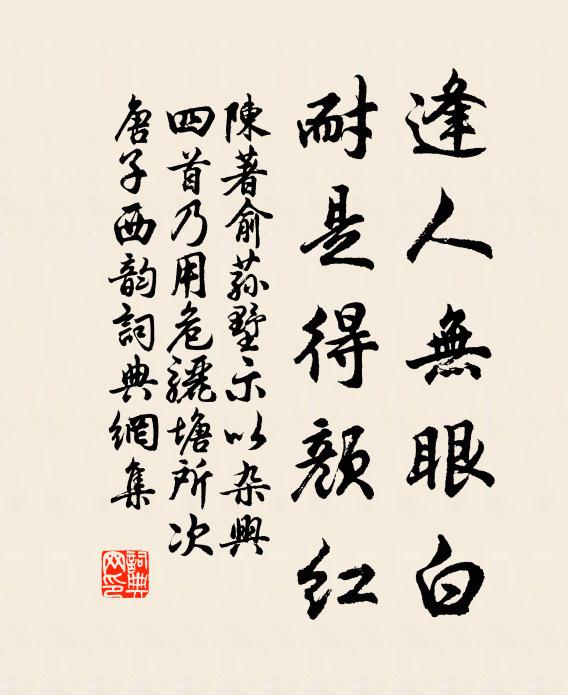 逢人無眼白
耐是得顏紅
陳著俞荪墅示以杂興
四首乃用危驪塘所次
唐子西韵詞典網集
詞典网印